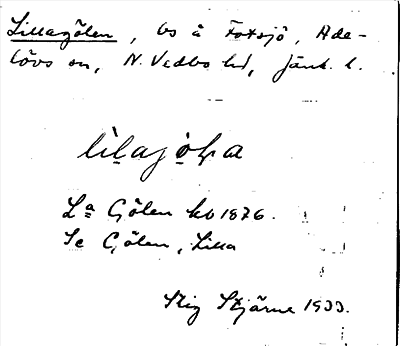 Lillagölen, bs å Fotsjö, Ade-
lövs sn, N. Vedbo hd, Jönk. l.
lìlajöḷa
La Gölen kb 1876.
Se Gölen, Lilla
Stig Stjärne 1933.